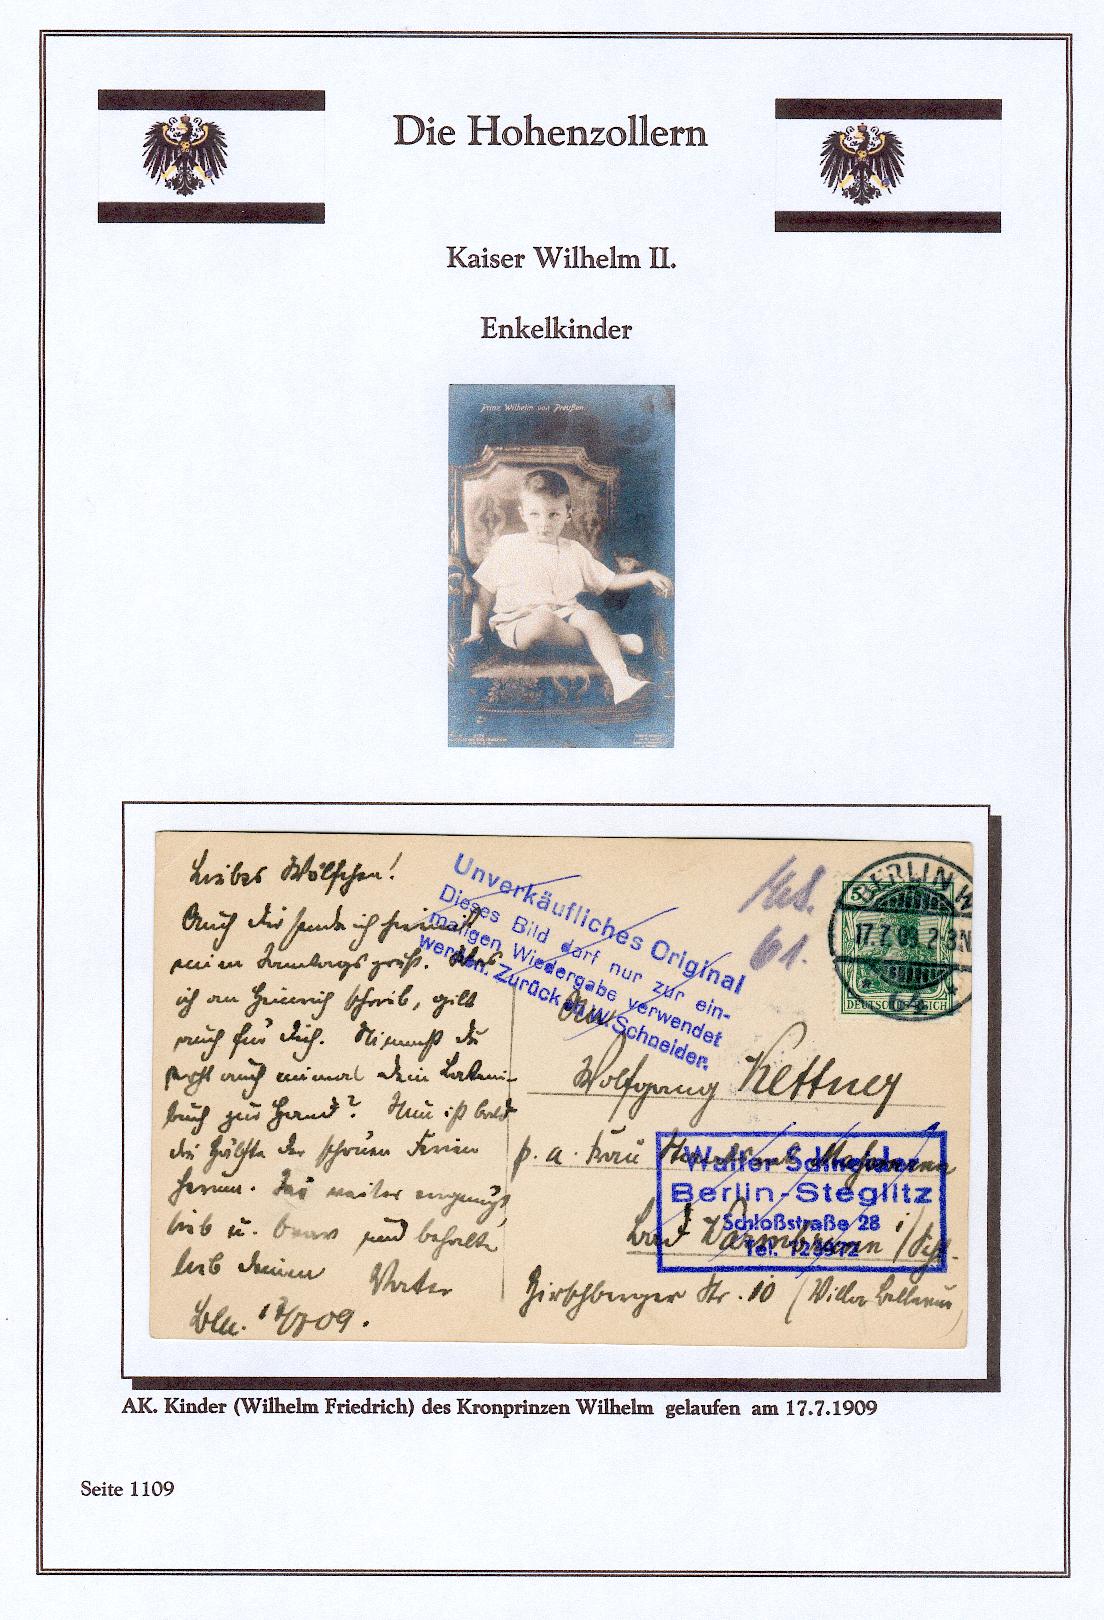 Die Hohenzollern
Kaiser Wilhelm II.
Enkelkinder
Prinz Wilhelm von Preußen.
Liebes Wölfchen!
Auch dir sende ich hiermit
einen Sonntagsgruß. Was
ich an Heinrich schrieb, gilt
auch für dich. Nimmst du
wohl auch einmal dein Latein-
buch zur Hand? Nun ist bald
die Hälfte der schönen Ferien
herum. Sei weiter vergnügt
lieb u. brav und behalte
lieb deinen Vater
Bln. 17/7 09.
Unverkäufliches Original
Dieses Bild darf nur zur ein-
maligen Wiedergabe verwendet
werden. Zurück an W. Schneider.
61.
BERLIN W
17.7.09. 2-3N
DEUTSCHES REICH
Wolfgang Kettner
p. a. Frau
Bad Warmbrunn i/Schl.
Hirschberger Str. 10 (Villa Bellevue)
Walter Schneider
Berlin-Steglitz
Schloßstraße 28
Tel.
AK. Kinder (Wilhelm Friedrich) des Kronprinzen Wilhelm gelaufen am 17.7.1909
Seite 1109